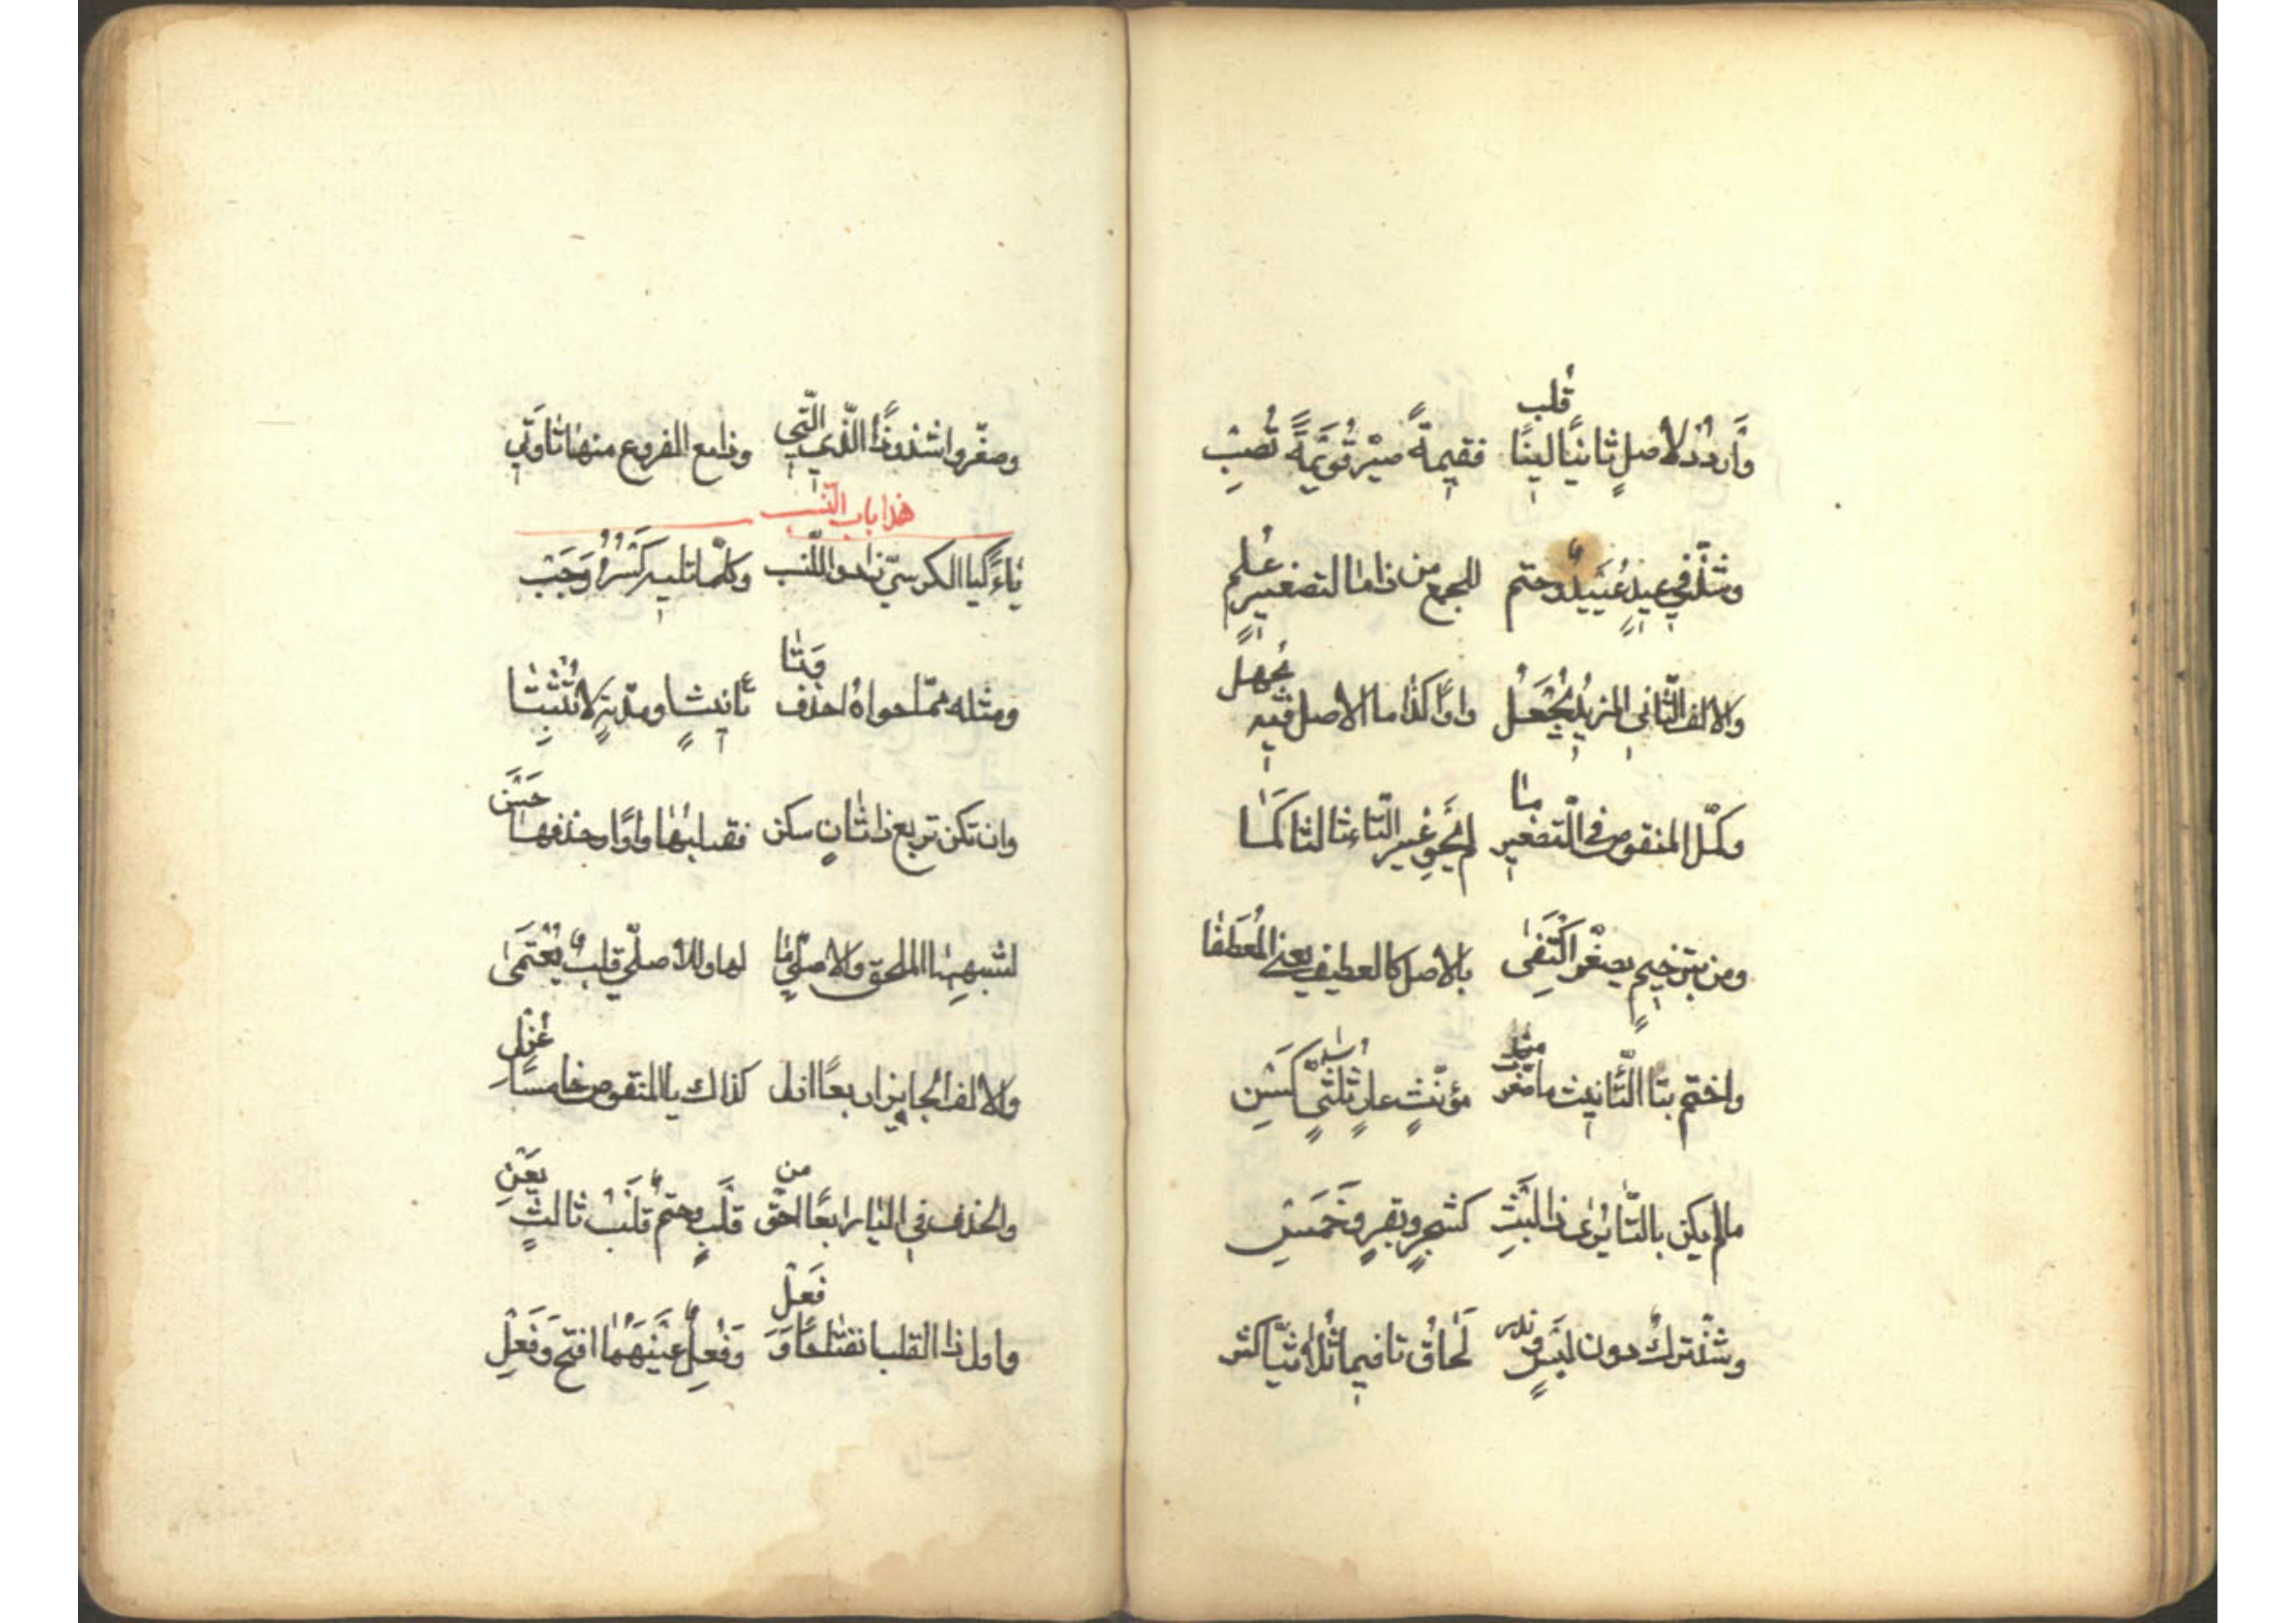 وَارْدُدْ لأصلٍ ثانيًا لينًا قُلب فقيمةً صيّر قُوَيمَةً تُصِبْ
وشذّ في عيدٍ عُيَيدٌ وحتم للجمع من ذا ما لتصغيرٍ عُلم
والالف الثّاني المزيدُ يُجْعَلُ واوًا كذا ما الاصل فيه يُجهل
وكمّل المنقوص في التّصغير ما لم يَحوِ غير التّاء ثالثا كَمَا
ومن بترخيمٍ يصغّر اكْتَفَى بالاصل كالعطيف يعني المُعطَفا
واختم بتا التّأنيث ما صغّرت من مؤنّثٍ عارٍ ثلاثيٍّ كَسِنّ
مالم يكن بالتّا يُرى ذا لَبْسِ كشجرٍ وبقرٍ وخَمسِ
وشذّ تركٌ دون لَبسٍ وندر لَحاقُ تا فيما ثُلاثيّا كثر
وصغّروا شذوذًا الّذي الّتي وذا مع الفروع منها تا وَتي
هذا باب النّسب
ياءً كيا الكرسيّ زادوا للنّسب وكلّما تليه كَسْرُهُ وَجَبْ
ومثله ممّا حواهُ احذف وَتَا تأنيثٍ او مدّتِهِ لا تُثْبِتَا
وان تكن تربع ذا ثانٍ سكن فقلبُها واوًا وحذفها حَسَنْ
لشبهها الملحق والاصليّ ما لها وللأصليّ قلبٌ يُعْتَمَى
والالف الجايز اربعًا ازل كذاك يا المنقوص خامسًا عُزِلْ
والحذف في اليا رابعًا احقّ من قلبٍ وحتمٌ قَلْبُ ثالثٍ يَعِنّ
واول ذا القلب انفتاحًا وَفَعِلْ وَفُعِلٌ عَيْنَهُما افتح وَفِعِلْ